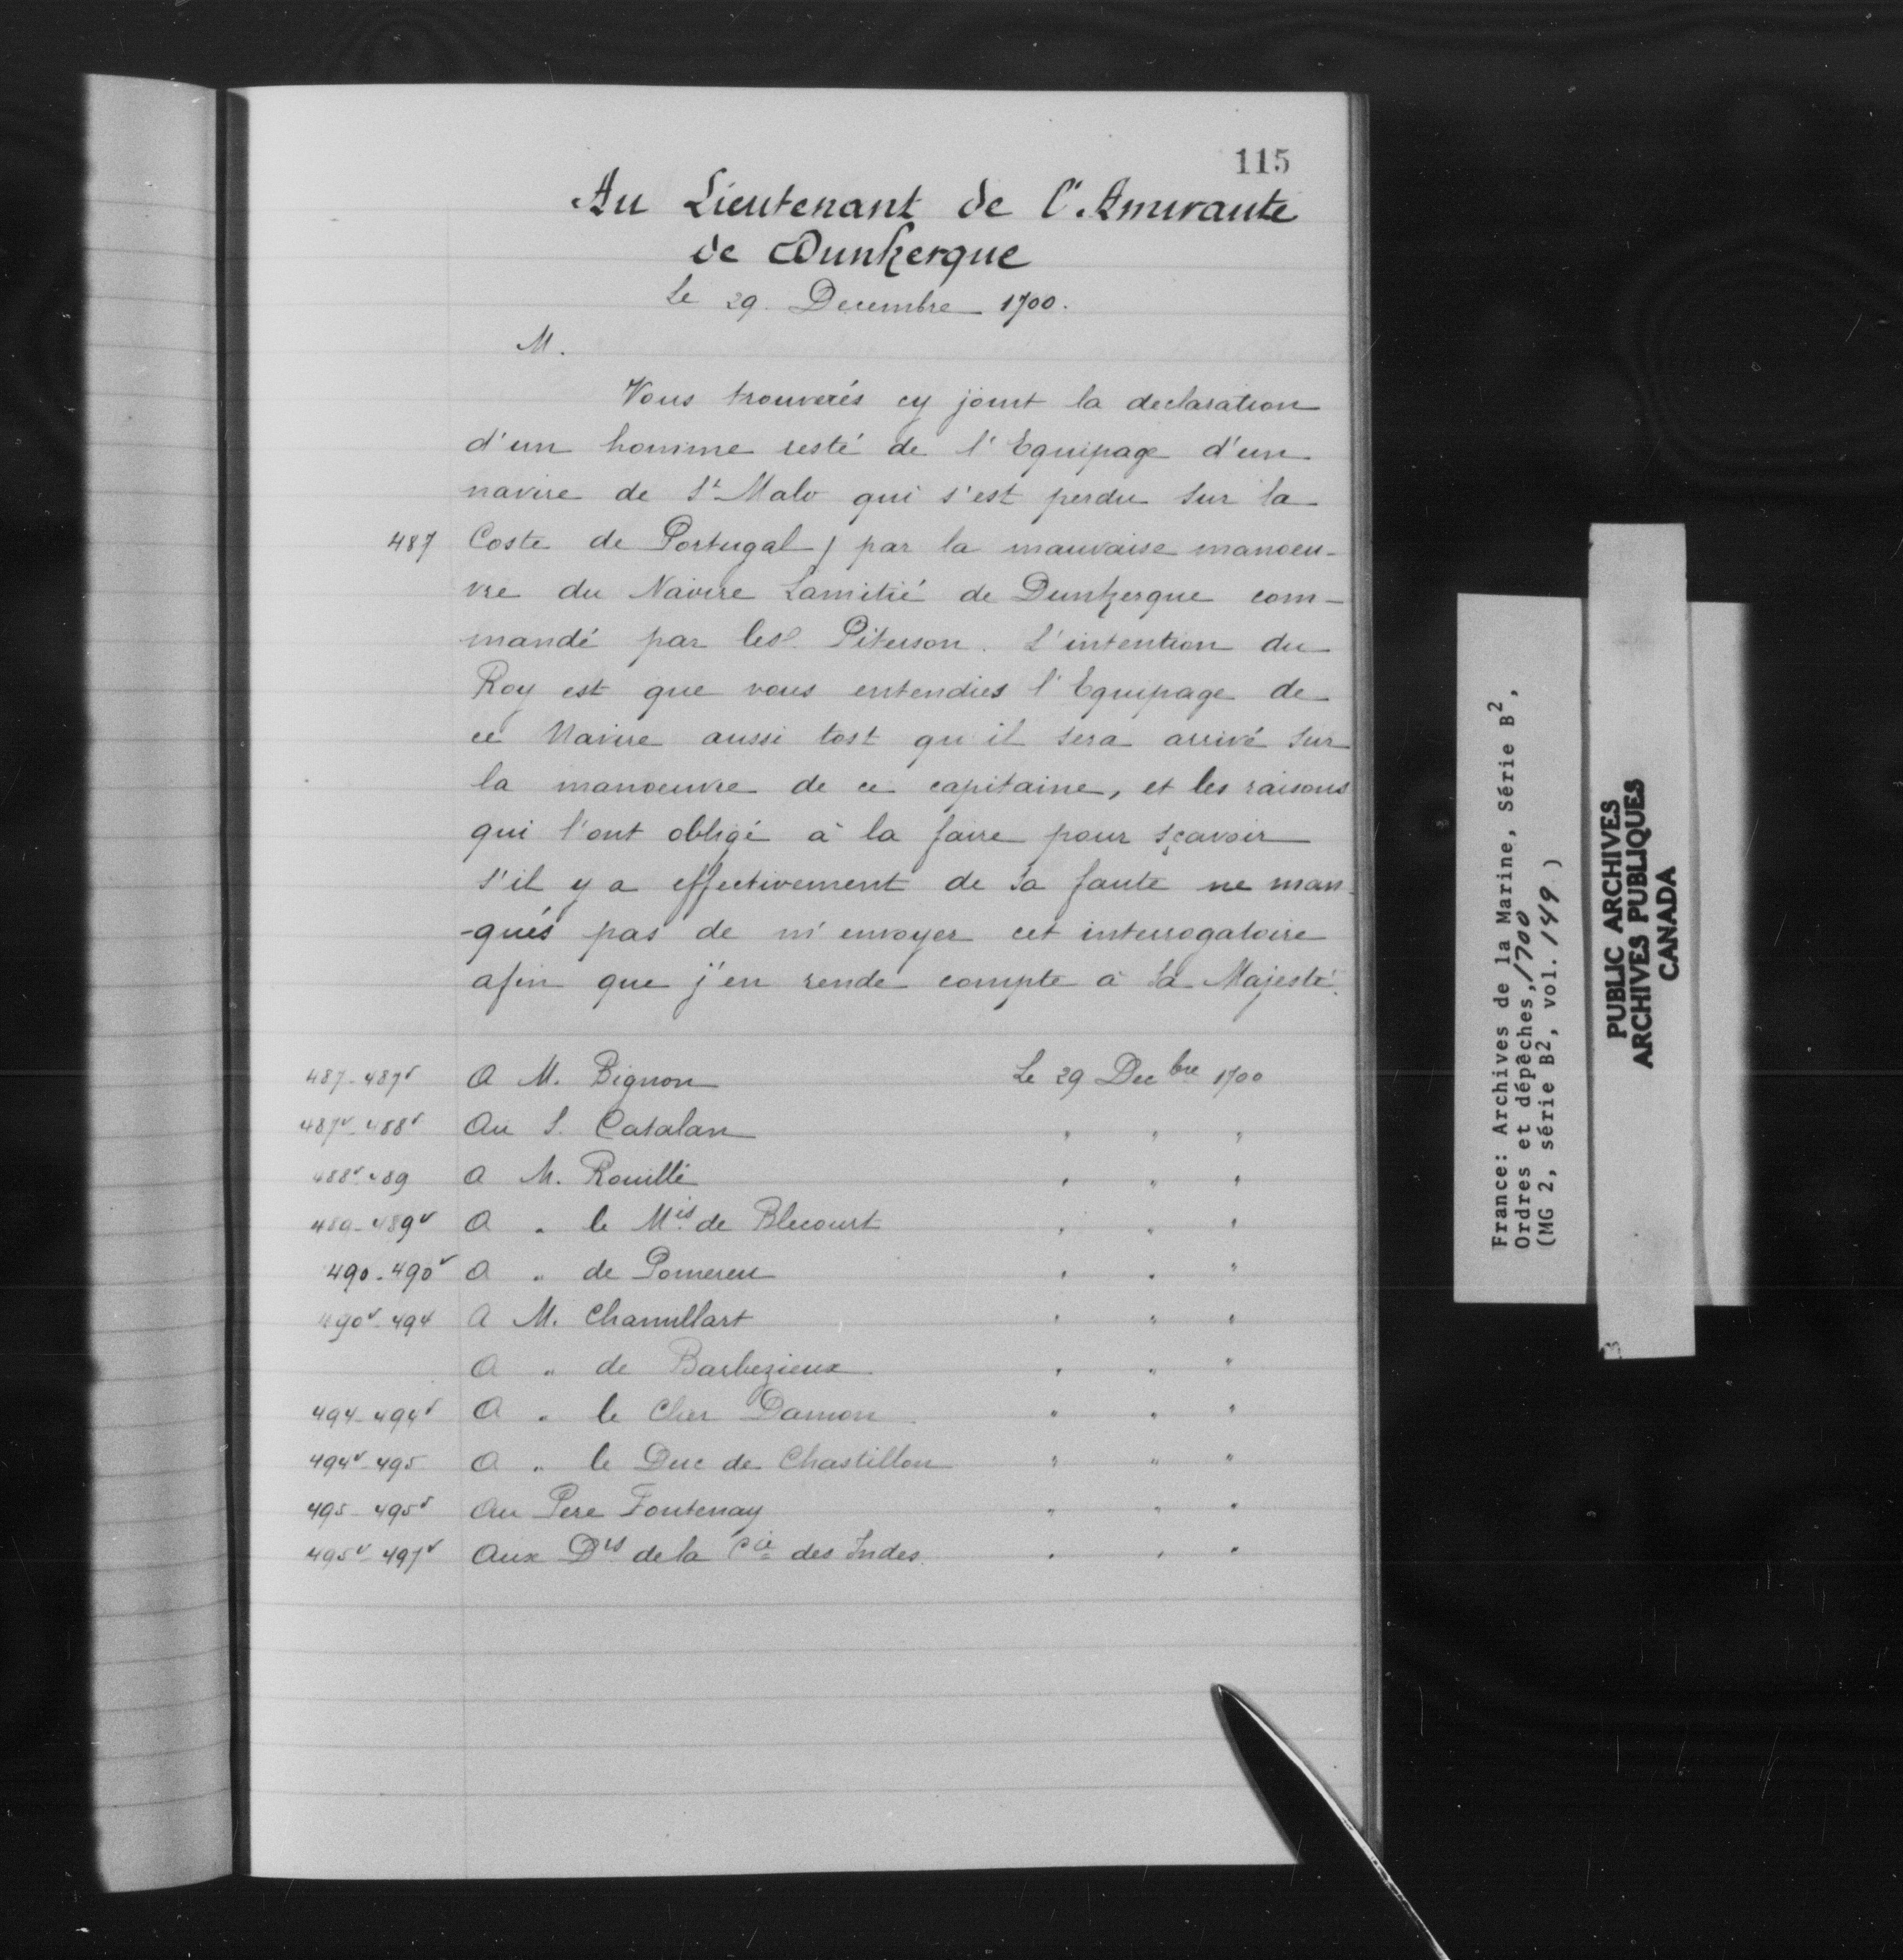 115
Au Lieutenant de l'Amirauté
de Dunkerque
Le 29. Decembre 1700.
M.
Vous trouverés cy joint la declaration
d'un homme resté de l'Equipage d'un
navire de St Malo qui s'est perdu sur la
487 Coste de Portugal / par la mauvaise manoeu-
vre du Navire Lamitié de Dunkerque com-
mandé par le S. Piterson. L'intention du
Roy est que vous entendies l'Equipage de
ce Navire aussi tost qu'il sera arrivé sur
la manoeuvre de ce capitaine, et les raisons
qui l'ont obligé à la faire pour sçavoir
s'il y a effectivement de sa faute ne man-
-qués pas de m'envoyer cet interrogatoire
afin que j'en rende compte à Sa Majesté.
487-487v A M. Bignon Le 29 Decbre 1700
487v-488v Au S. Catalan " " "
488v-89 A M. Rouillé " " "
489-489v A " le Mis de Blecourt " " "
490-490v A " de Pomereu " " "
490v-494 A M. Chamillart " " "
A " de Barbezieux " " "
494-494v A " le Cher Damon " " "
494v-495 A " le Duc de Chastillon " " "
495-495v Au Pere Fontenay " " "
495v-497v Aux Drs de la Cie des Indes. " " "
France: Archives de la Marine, Série B2,
Ordres et dépêches, 1700
(MG 2, série B2, vol. 149 )
PUBLIC ARCHIVES
ARCHIVES PUBLIQUES
CANADA